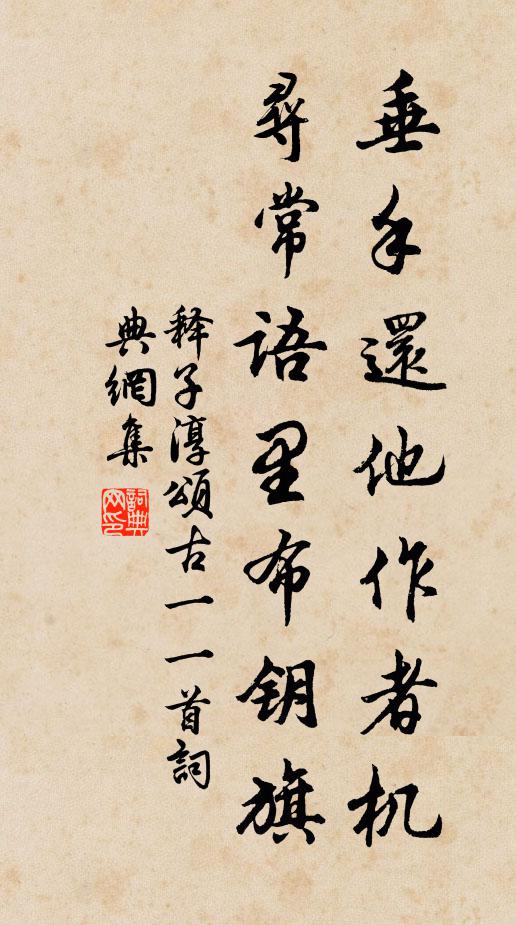 垂手還他作者机
尋常語里布钥旗
释子淳頌古一一首詞
典網集
詞典网印